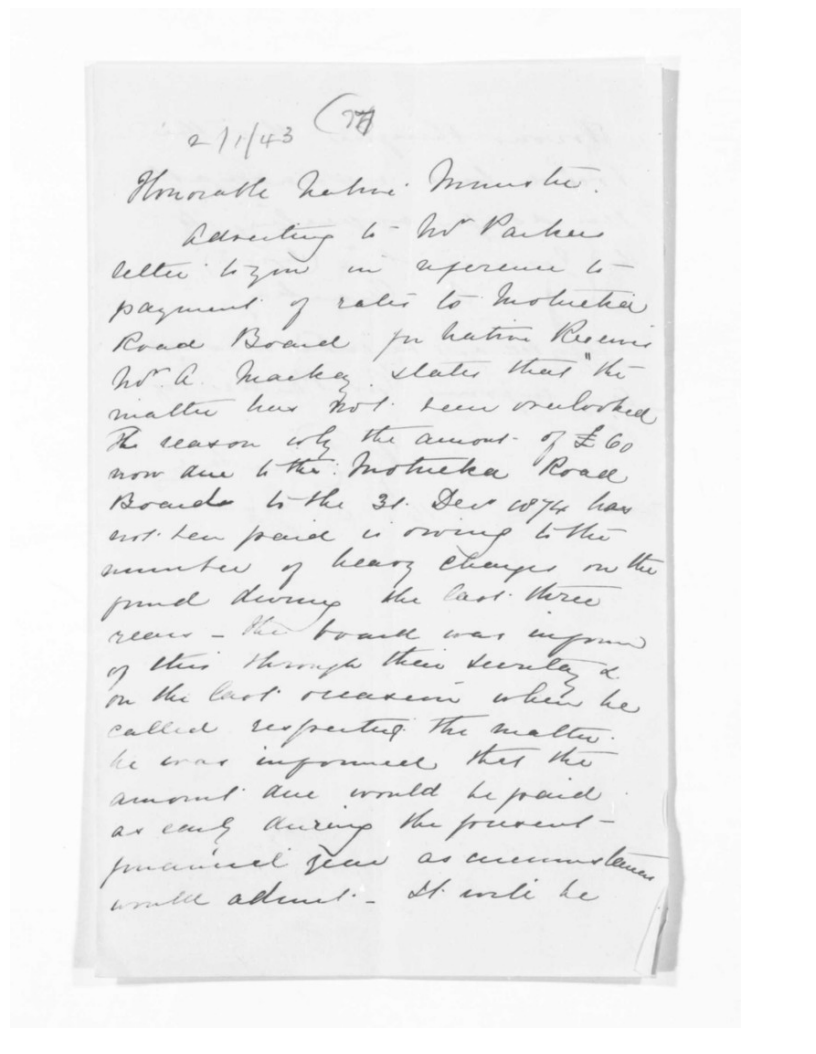 2/1/43
Honorable Native Minister.
Adverting to Mr Parkers
letter to you in reference to
payment of rates to Motueka
Road Board for Native Reserves
Mr. A. Mackay states that "the
matter has not been overlooked
The reason why the amount of £60
now due to the Motueka Road
Board to the 31 Decr 1874 has
not been paid is owing to the
number of heavy charges on the
fund during the last three
years - the board was inform
of this through their Secretary &
on the last occasion when he
called respecting the matter.
he was informed that the
amount due would be paid
as early during the present
financial year as circumstances
would admit. - It will be